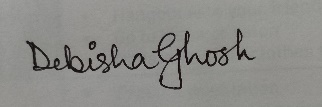 Debisha Ghosh